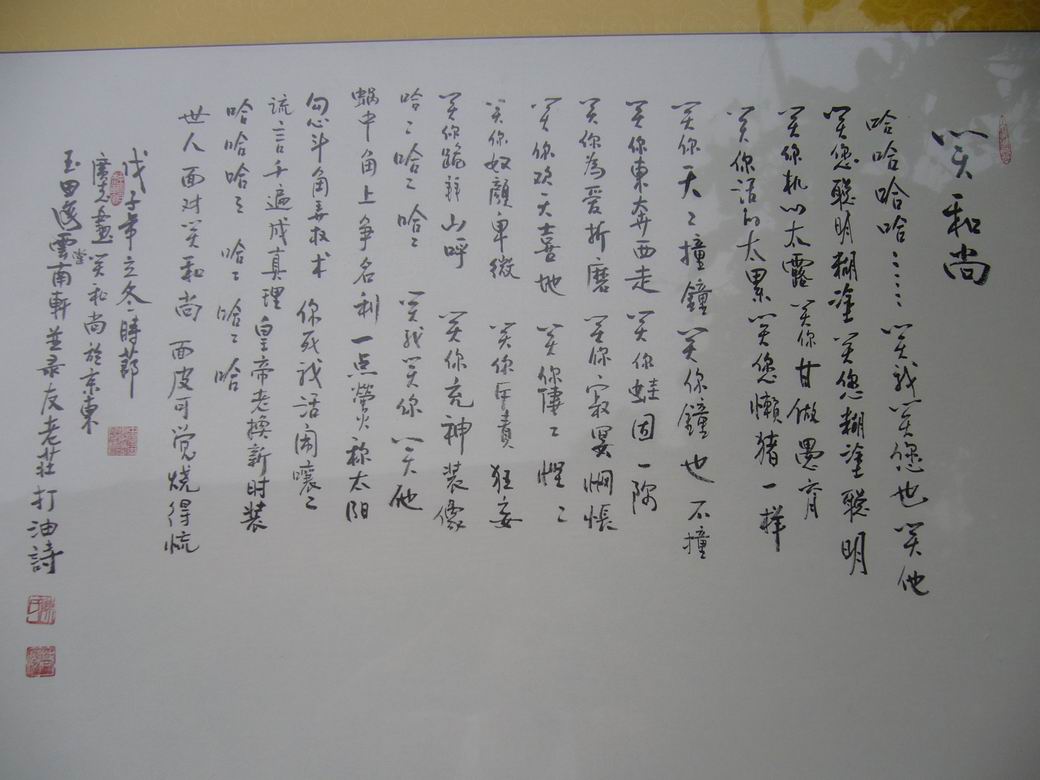 笑和尚
哈哈哈哈⋯⋯ 笑我笑您也笑他
笑您聪明糊塗 笑您糊塗聪明
笑你机心太露 笑你甘做愚盲
笑你活的太累 笑您懒猪一样
笑你天々撞鐘 笑你鐘也不撞
笑你東奔西走 笑你蛙困一隅
笑你為爱折磨 笑你寂寞惆悵
笑你欢天喜地 笑你悽々惶々
笑你奴颜卑微 笑你斥責狂妄
笑你跪拜山呼 笑你充神装像
哈々哈々哈々 笑我笑你笑他
蝸中角上争名利 一点萤火称太阳
勾心斗角弄权术 你死我活闹嚷々
謊言千遍成真理 皇帝老换新时装
哈哈哈々 哈々哈々哈
世人面对笑和尚 面皮可觉烧得慌
戊子年立冬时節
廣志畫笑和尚於京東
玉田逸雲堂南軒並录友老莊打油詩